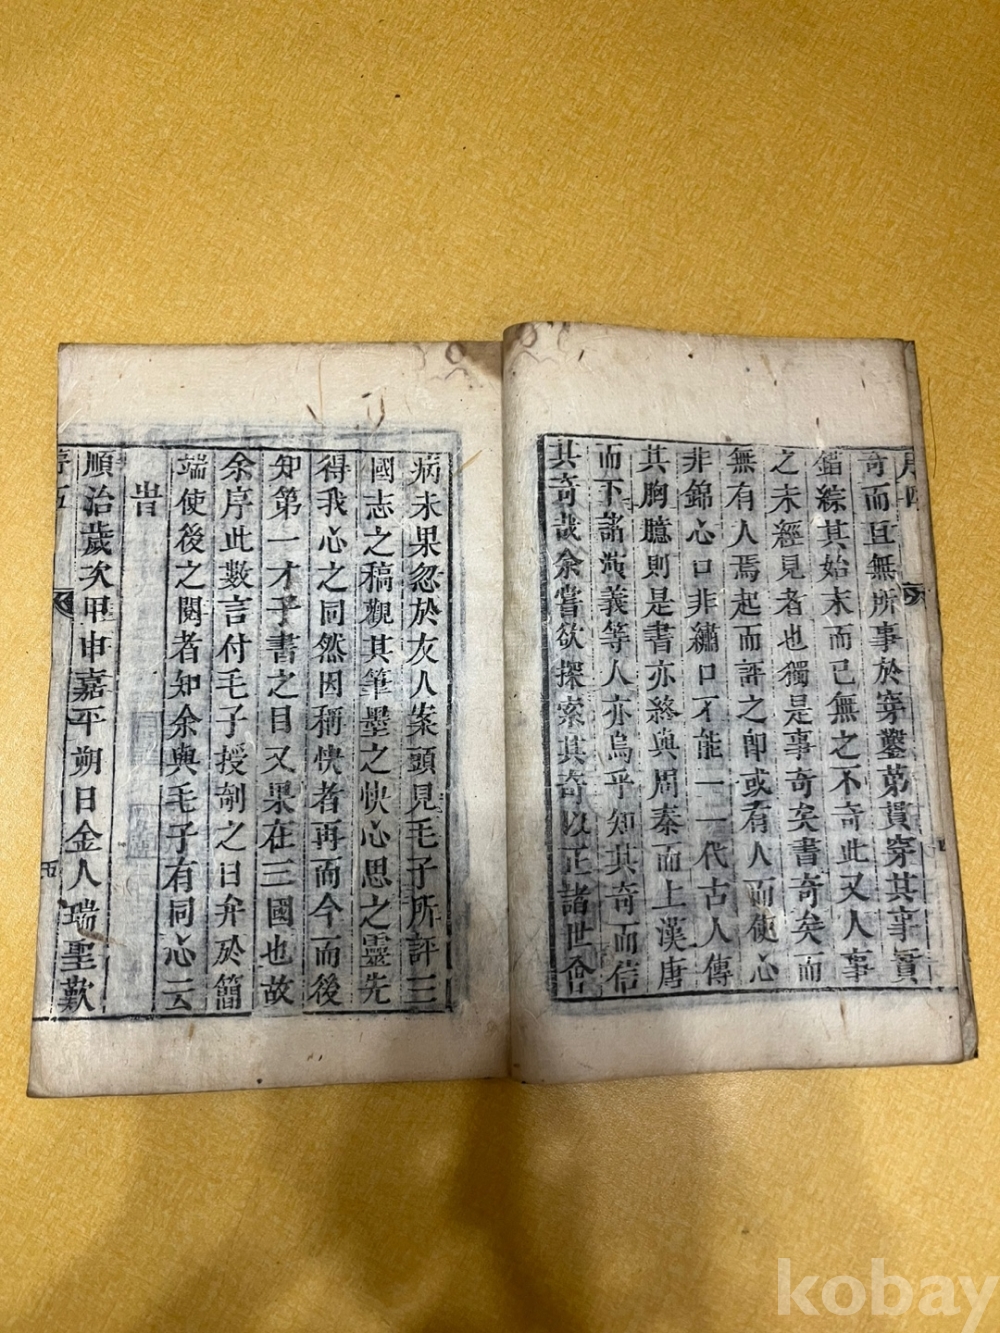 序四
奇而且無所事於穿鑿第貫穿其事實
錯綜其始末而已無之不奇此又人事
之未經見者也獨是事奇矣書奇矣而
無有人焉起而評之卽或有人而使心
非錦心口非繡口不能一一代古人傳
其胸臆則是書亦終與周秦而上漢唐
而下諸演義等人亦烏乎知其奇而信
其奇哉余嘗欲探索其奇以正諸世會
病未果忽於友人案頭見毛子所評三
國志之稿觀其筆墨之快心思之靈先
得我心之同然因稱快者再而今而後
知第一才子書之目又果在三國也故
余序此數言付毛子授剞之日弁於簡
端使後之閱者知余與毛子有同心云
旹
順治歲次甲申嘉平朔日金人瑞聖歎
序五
四
五
kobay